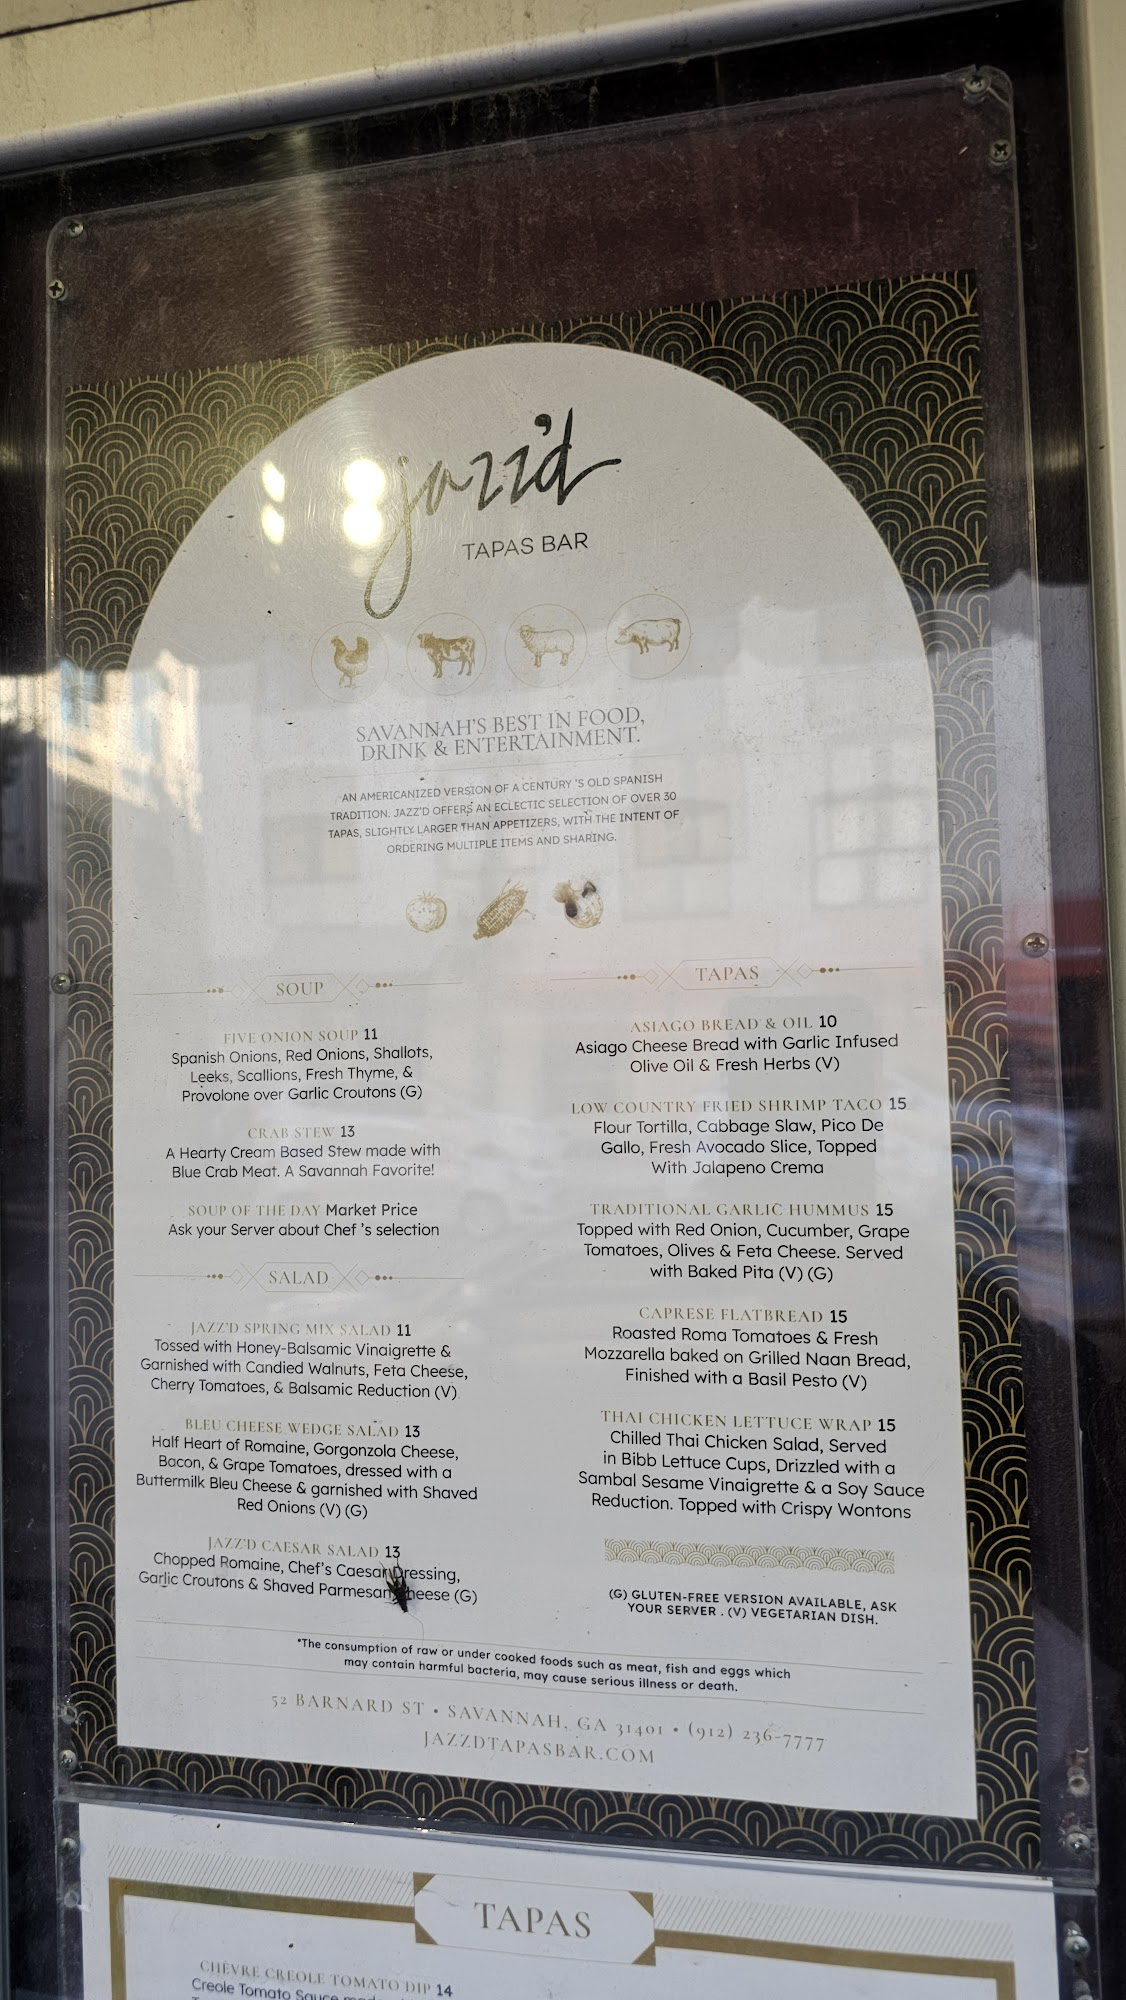 jazz'd
TAPAS BAR
SAVANNAH'S BEST IN FOOD,
DRINK & ENTERTAINMENT.
AN AMERICANIZED VERSION OF A CENTURY 'S OLD SPANISH
TRADITION. JAZZ'D OFFERS AN ECLECTIC SELECTION OF OVER 30
TAPAS, SLIGHTLY LARGER THAN APPETIZERS, WITH THE INTENT OF
ORDERING MULTIPLE ITEMS AND SHARING.
SOUP
FIVE ONION SOUP 11
Spanish Onions, Red Onions, Shallots,
Leeks, Scallions, Fresh Thyme, &
Provolone over Garlic Croutons (G)
CRAB STEW 13
A Hearty Cream Based Stew made with
Blue Crab Meat. A Savannah Favorite!
SOUP OF THE DAY Market Price
Ask your Server about Chef 's selection
SALAD
JAZZ'D SPRING MIX SALAD 11
Tossed with Honey-Balsamic Vinaigrette &
Garnished with Candied Walnuts, Feta Cheese,
Cherry Tomatoes, & Balsamic Reduction (V)
BLEU CHEESE WEDGE SALAD 13
Half Heart of Romaine, Gorgonzola Cheese,
Bacon, & Grape Tomatoes, dressed with a
Buttermilk Bleu Cheese & garnished with Shaved
Red Onions (V) (G)
JAZZ'D CAESAR SALAD 13
Chopped Romaine, Chef's Caesar Dressing,
Garlic Croutons & Shaved Parmesan Cheese (G)
TAPAS
ASIAGO BREAD & OIL 10
Asiago Cheese Bread with Garlic Infused
Olive Oil & Fresh Herbs (V)
LOW COUNTRY FRIED SHRIMP TACO 15
Flour Tortilla, Cabbage Slaw, Pico De
Gallo, Fresh Avocado Slice, Topped
With Jalapeno Crema
TRADITIONAL GARLIC HUMMUS 15
Topped with Red Onion, Cucumber, Grape
Tomatoes, Olives & Feta Cheese. Served
with Baked Pita (V) (G)
CAPRESE FLATBREAD 15
Roasted Roma Tomatoes & Fresh
Mozzarella baked on Grilled Naan Bread,
Finished with a Basil Pesto (V)
THAI CHICKEN LETTUCE WRAP 15
Chilled Thai Chicken Salad, Served
in Bibb Lettuce Cups, Drizzled with a
Sambal Sesame Vinaigrette & a Soy Sauce
Reduction. Topped with Crispy Wontons
(G) GLUTEN-FREE VERSION AVAILABLE, ASK
YOUR SERVER . (V) VEGETARIAN DISH.
*The consumption of raw or under cooked foods such as meat, fish and eggs which
may contain harmful bacteria, may cause serious illness or death.
52 BARNARD ST • SAVANNAH, GA 31401 • (912) 236-7777
JAZZDTAPASBAR.COM
TAPAS
CHÈVRE CREOLE TOMATO DIP 14
Creole Tomato Sauce